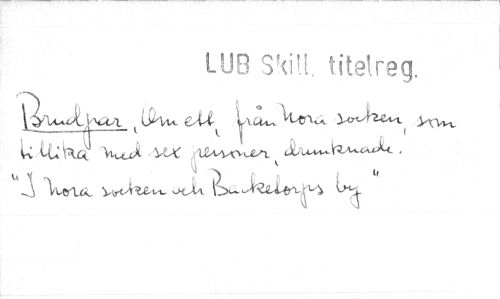 LUB Skill. titelreg.
Brudpar, Om ett, från Nora socken, som
tillika med sex personer, drunknade.
"I Nora socken och Backetorps by"